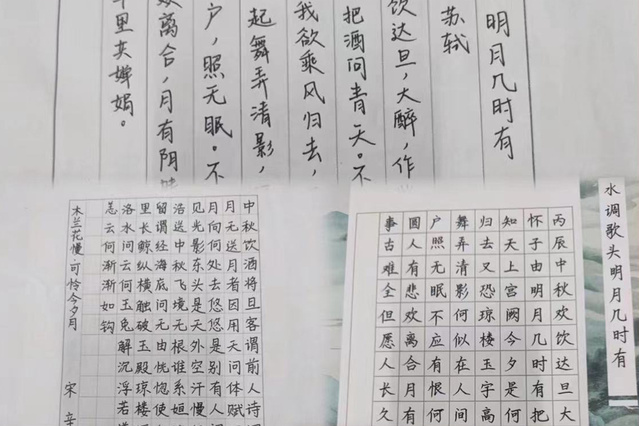 明月几时有
苏轼
饮达旦，大醉，作
把酒问青天。不
我欲乘风归去，
起舞弄清影，
户，照无眠。不
离合，月有阴
里共婵娟。
中秋饮酒将旦客谓前人诗
月无送月者因用天问体赋
月向何处去悠悠是别有人
见光影东头是天外空汗慢
浩送中秋飞境无根谁系姮
留谓经海底问无由恍惚使
里长鲸纵横触破玉殿琼楼
洛水问云何玉兔解沉浮若
恙云何渐渐如钩
木兰花慢·可怜今夕月 宋 辛
水调歌头明月几时有
丙辰中秋欢饮达旦大
怀子由明月几时有把
知天上宫阙今夕是何
归去又恐琼楼玉宇高
舞弄清影何似在人间
户照无眠不应有恨何
圆人有悲欢离合月有
事古难全但愿人长久